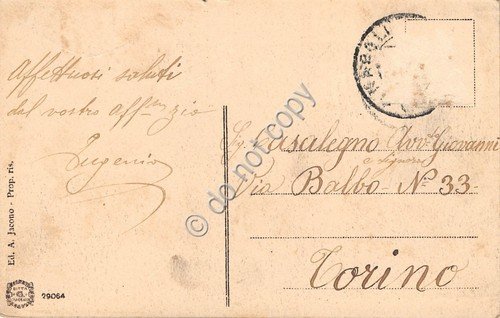 Affettuosi saluti
dal vostro aff.mo zio
Eugenio
NAPOLI
Casalegno Giovanni
e Signora
Via Balbo N° 33
Torino
Ed. A. Jacono - Prop. ris.
29064
© do not copy